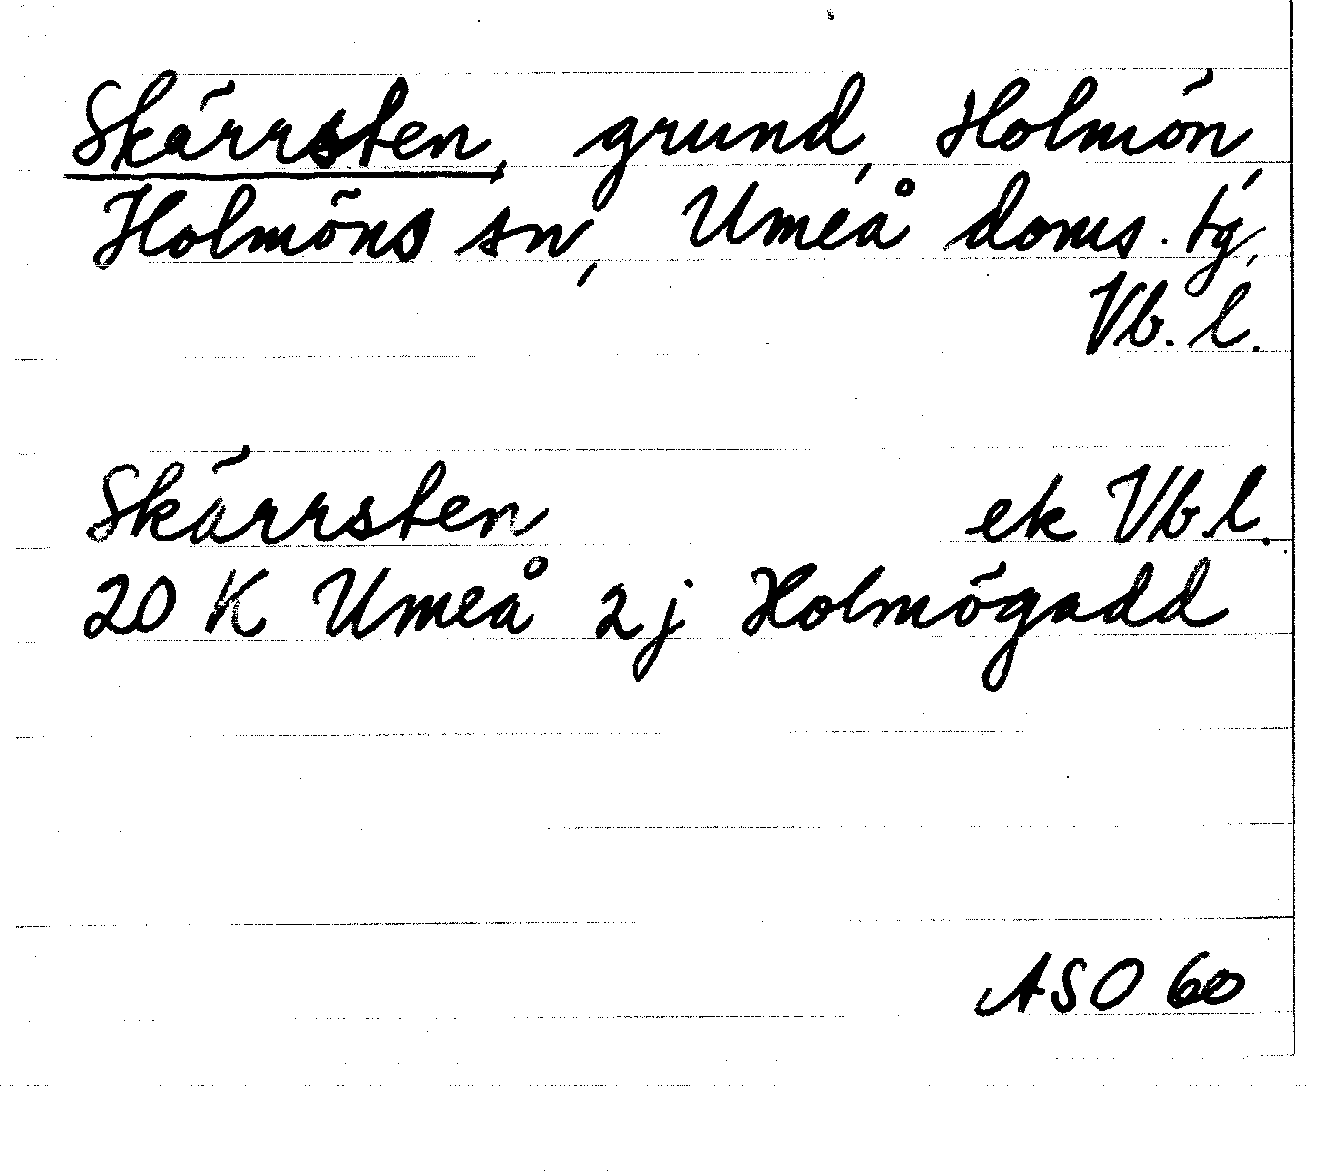 Skärrsten, grund, Holmön,
Holmöns sn, Umeå doms. tg,
Vb. l.
Skärrsten ek Vb l.
20 K Umeå 2 j Holmögadd
ASO 60